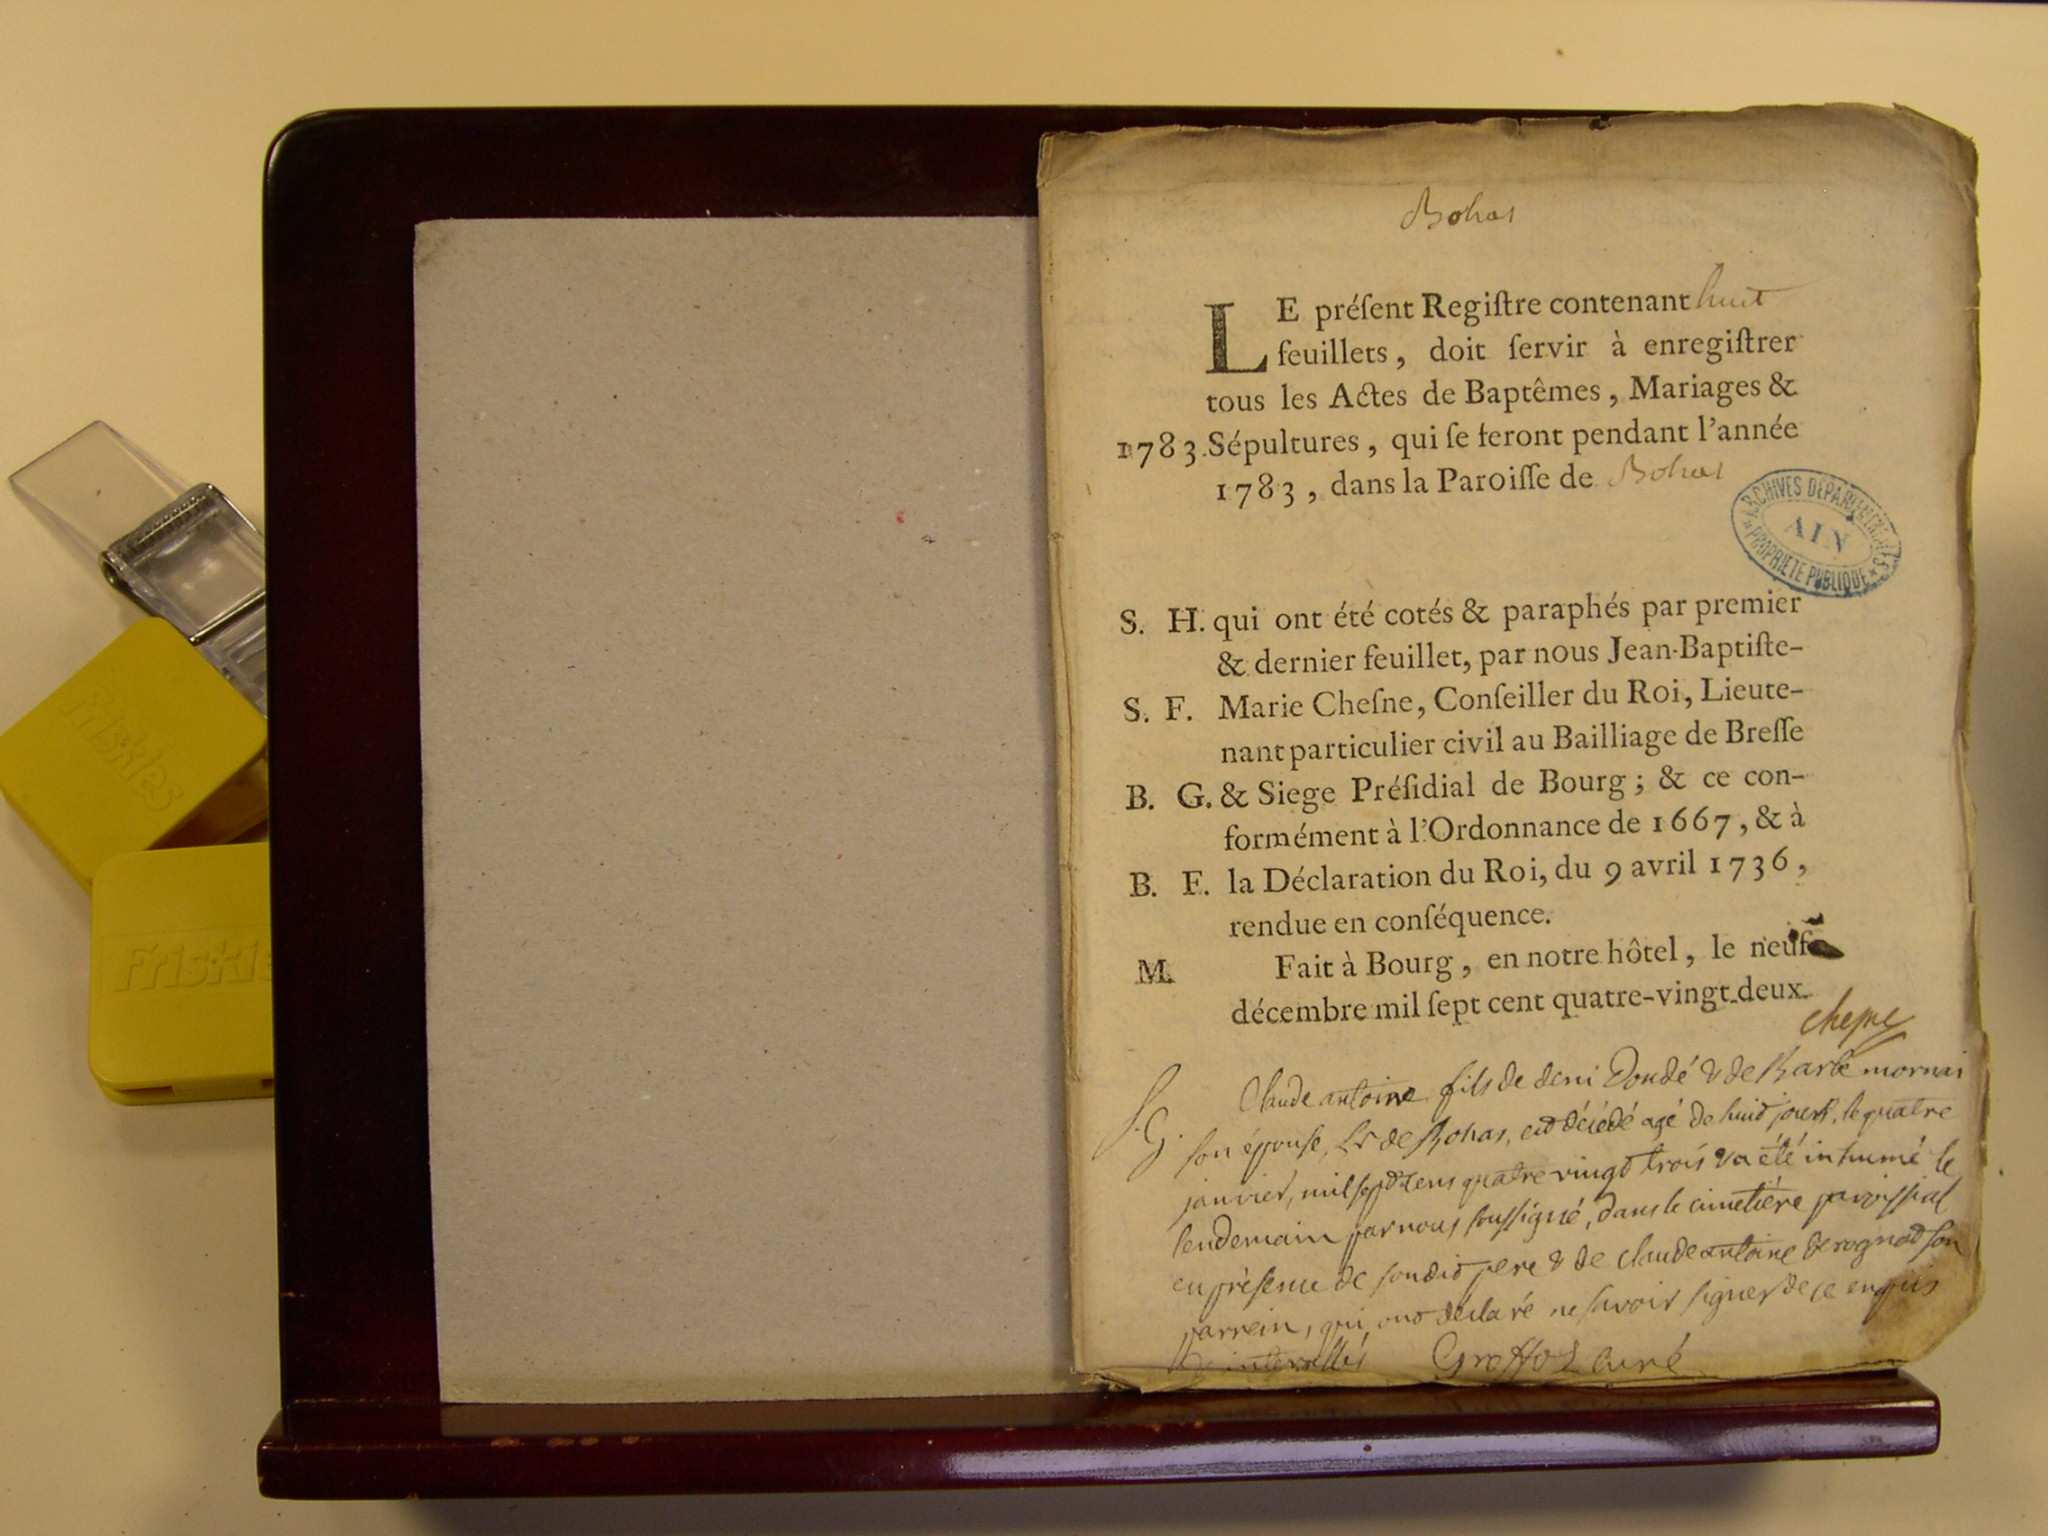 Bohas
LE préſent Regiſtre contenant huit
feuillets, doit ſervir à enregiſtrer
tous les Actes de Baptêmes, Mariages &
1783. Sépultures, qui ſe feront pendant l'année
1783, dans la Paroiſſe de Bohas
ARCHIVES DÉPARTEMENTALES
AIN
PROPRIÉTÉ PUBLIQUE
S. H. qui ont été cotés & paraphés par premier
& dernier feuillet, par nous Jean-Baptiſte-
S. F. Marie Cheſne, Conſeiller du Roi, Lieute-
nant particulier civil au Bailliage de Breſſe
B. G. & Siege Préſidial de Bourg; & ce con-
formément à l'Ordonnance de 1667, & à
B. F. la Déclaration du Roi, du 9 avril 1736,
rendue en conſéquence.
M. Fait à Bourg, en notre hôtel, le neuf
décembre mil ſept cent quatre-vingt-deux.
cheſne
S. G. Claude antoine fils de deni Doudé & de Barbe mornai
son épouse, de Bohas, est décédé agé de huit jours, le quatre
janvier, mil sept cens quatre vingt trois & a été inhumé le
lendemain par nous soussigné, dans le cimetière paroissial
en présence de son dit pere & de claude antoine derognat son
parrein, qui ont déclaré ne savoir signer de ce enquis
& interpellés Groffoz curé
Friskies
Friskie